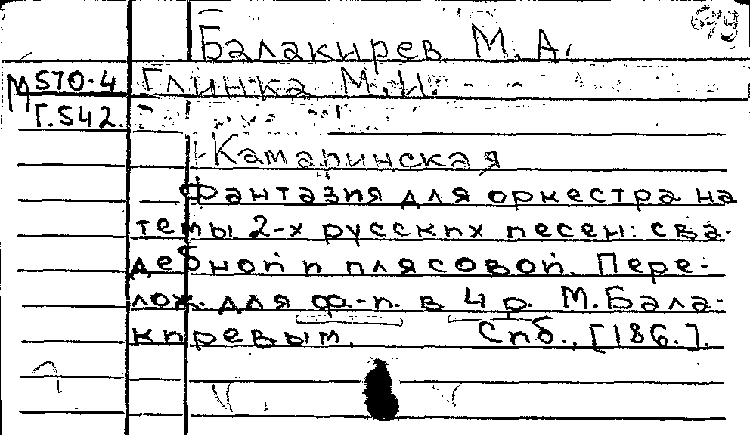 Балакирев М.А.
М 570-4 Глинка М.И.
Г.542.
Камаринская
Фантазия для оркестра на
темы 2-х русских песен: сва-
дебной и плясовой. Пере-
лож. для ф.-п. в 4 р. М.Бала-
киревым. Спб., [186.].